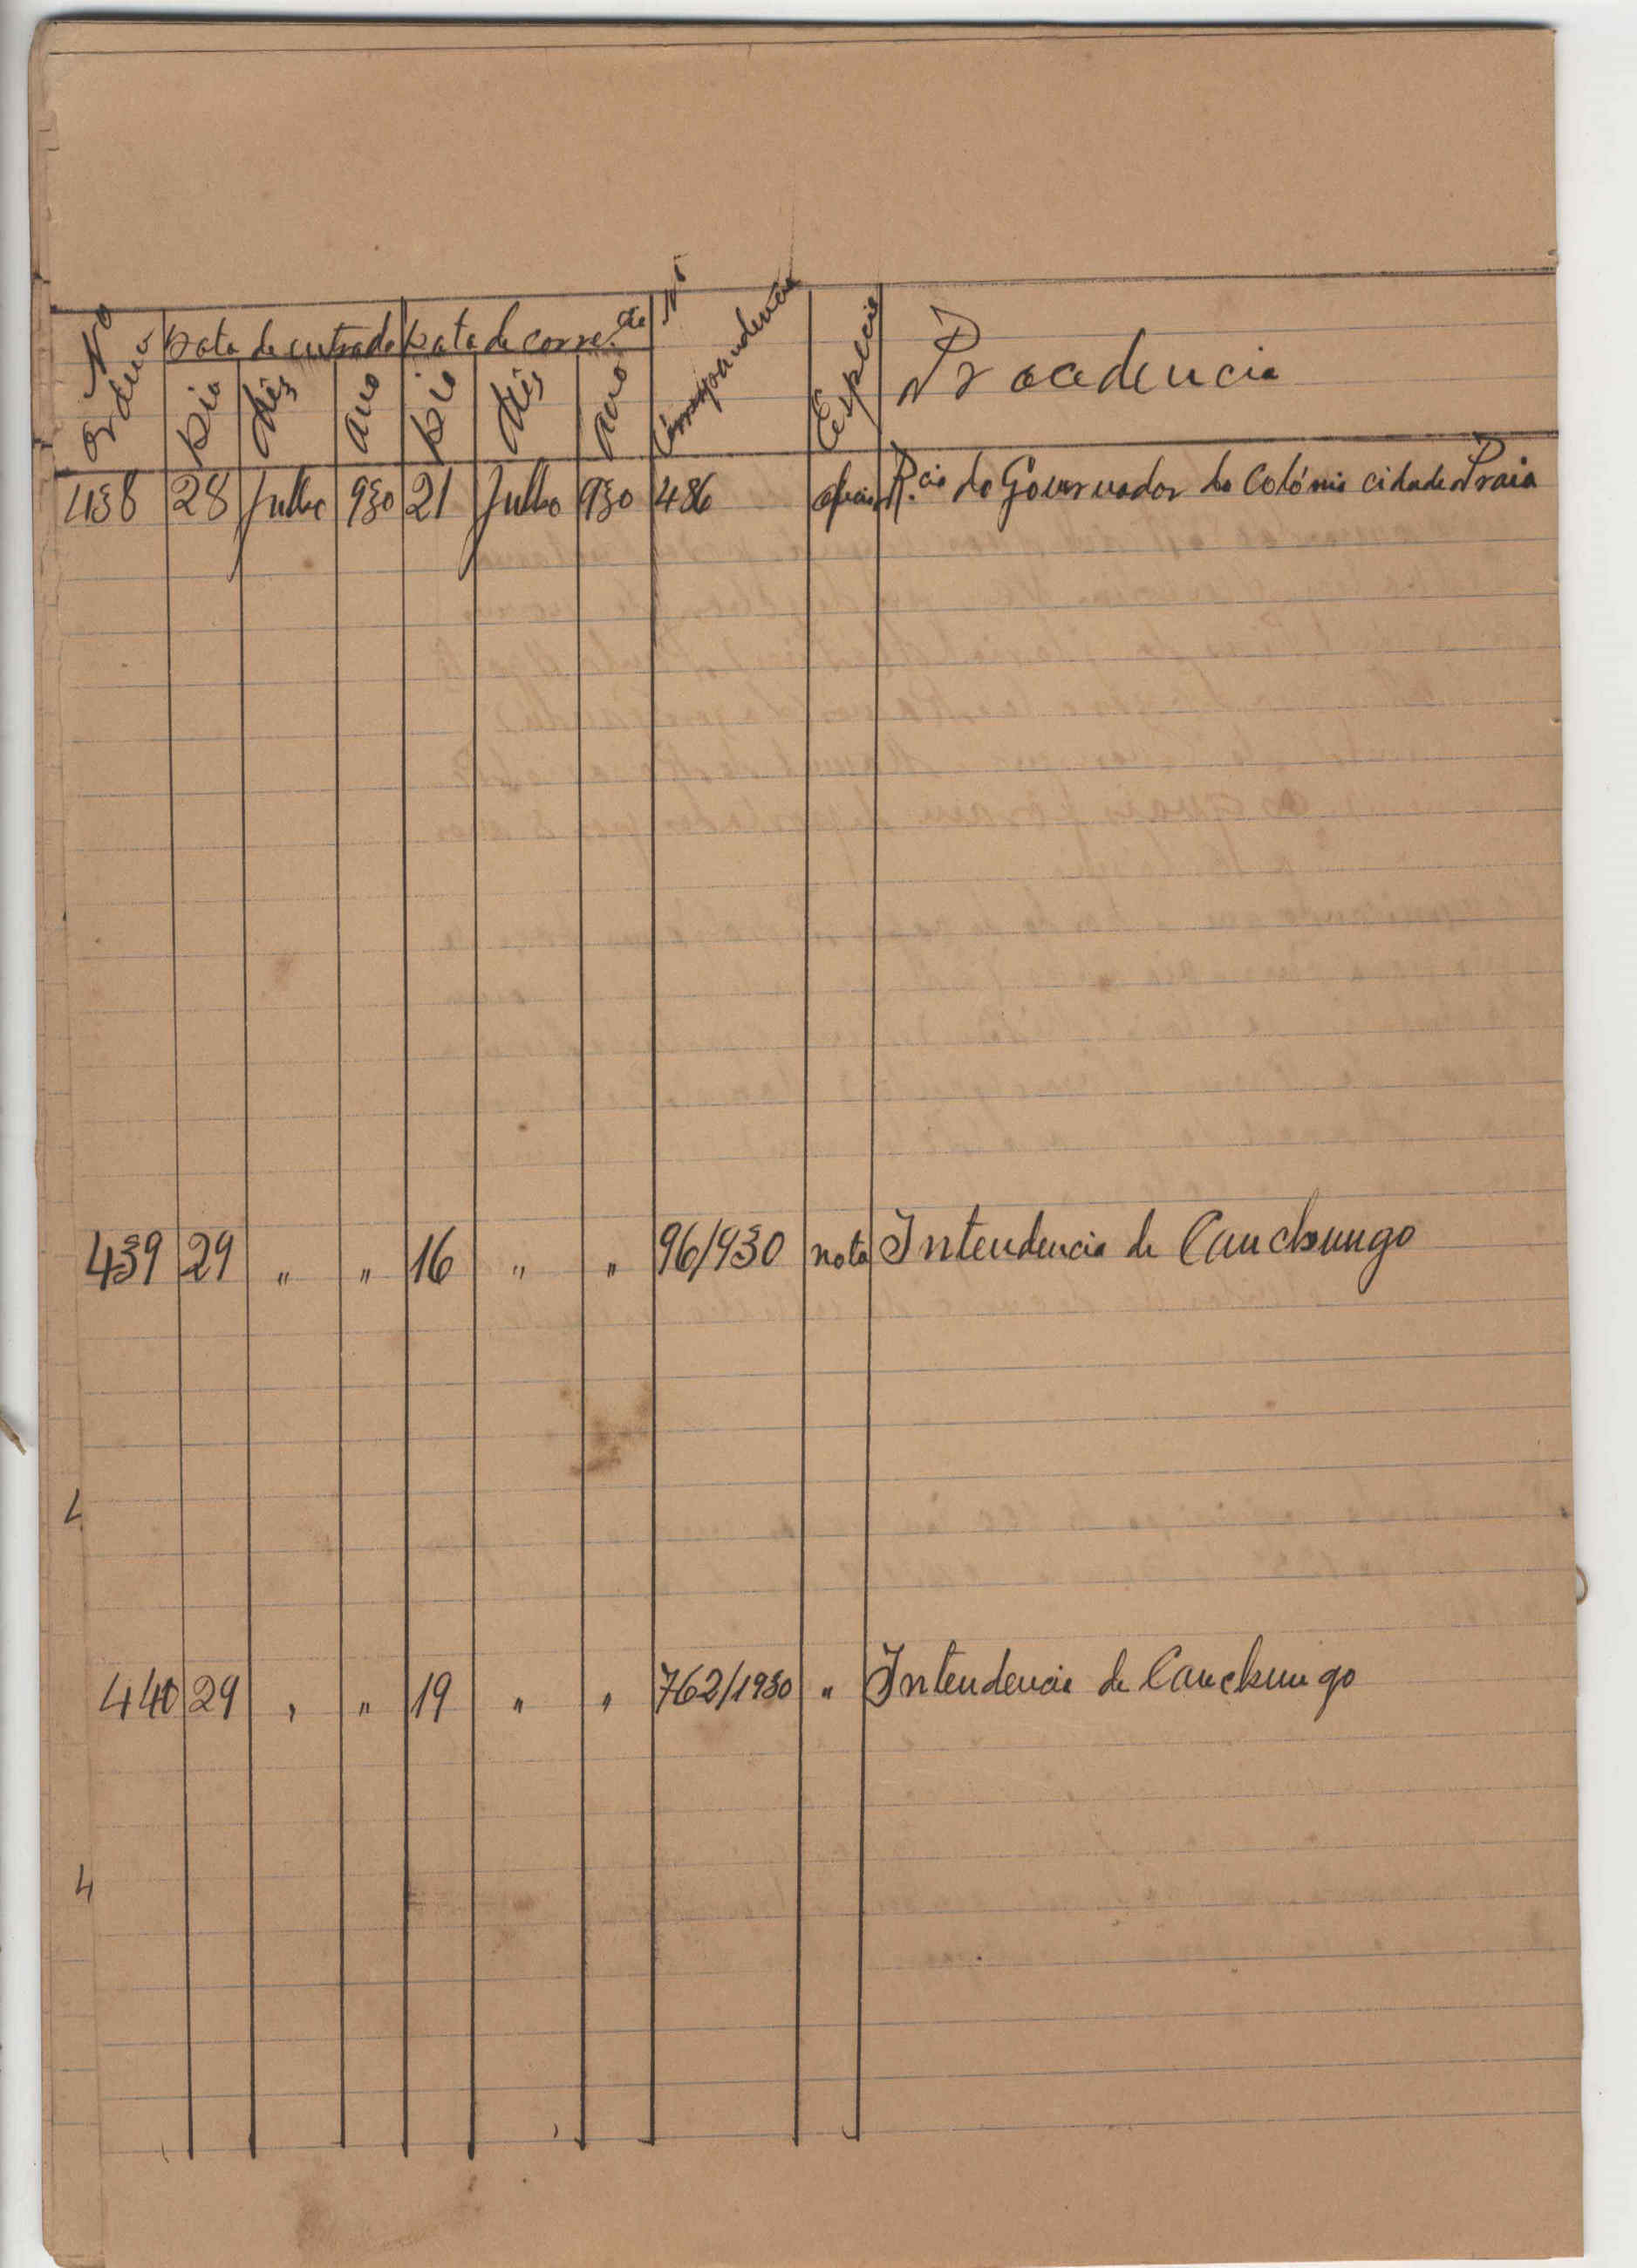 Nº Ordem Data de entrada Data de corre.cia Nº Correspondencia Especie Procedencia
Dia Mês Ano Dia Mês Ano
438 28 Julho 930 21 Julho 930 486 oficio R.cia do Governador da Colónia cidade Praia
439 29 " " 16 " " 96/930 nota Intendencia de Canchungo
440 29 " " 19 " " 762/1930 " Intendencia de Canchungo